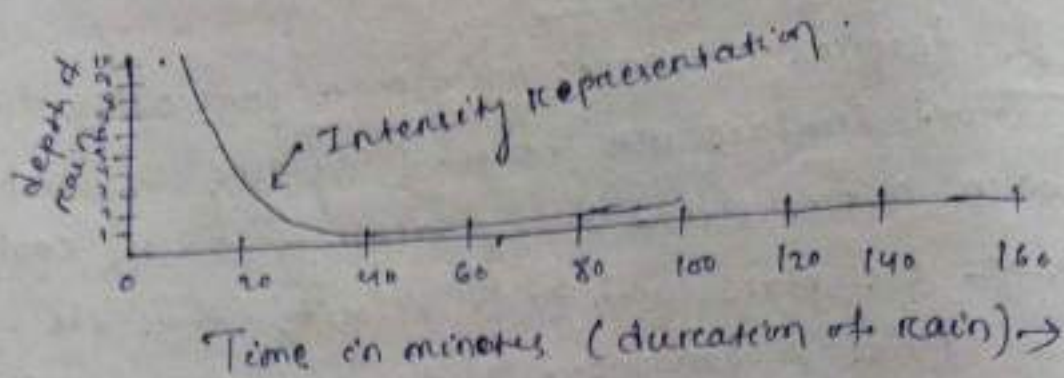 depth of
rain
Intensity representation.
0 20 40 60 80 100 120 140 160
Time in minutes (duration of rain) →